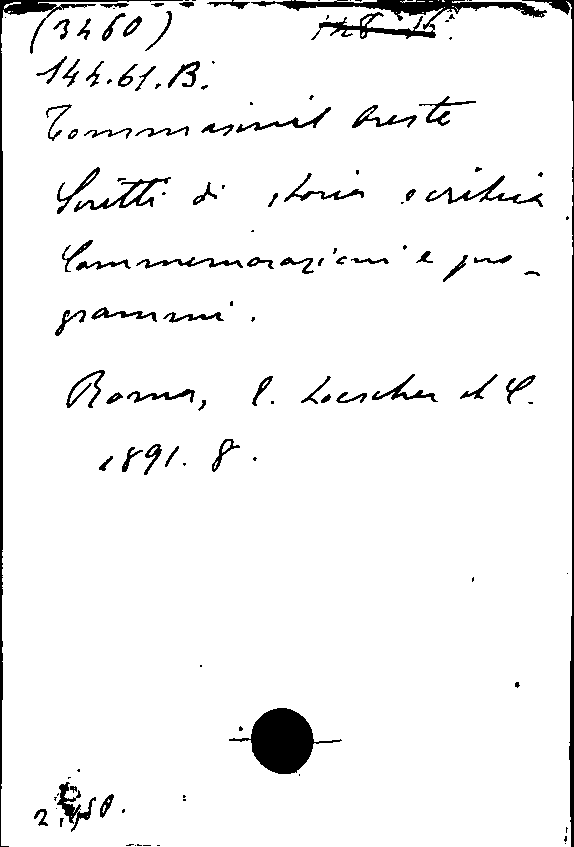 (3460)
144.61.B.
Tommasini Oreste
Scritti di storia e critica
Commemorazioni e pro-
grammi.
Roma, E. Loescher et C.
1891. 8.